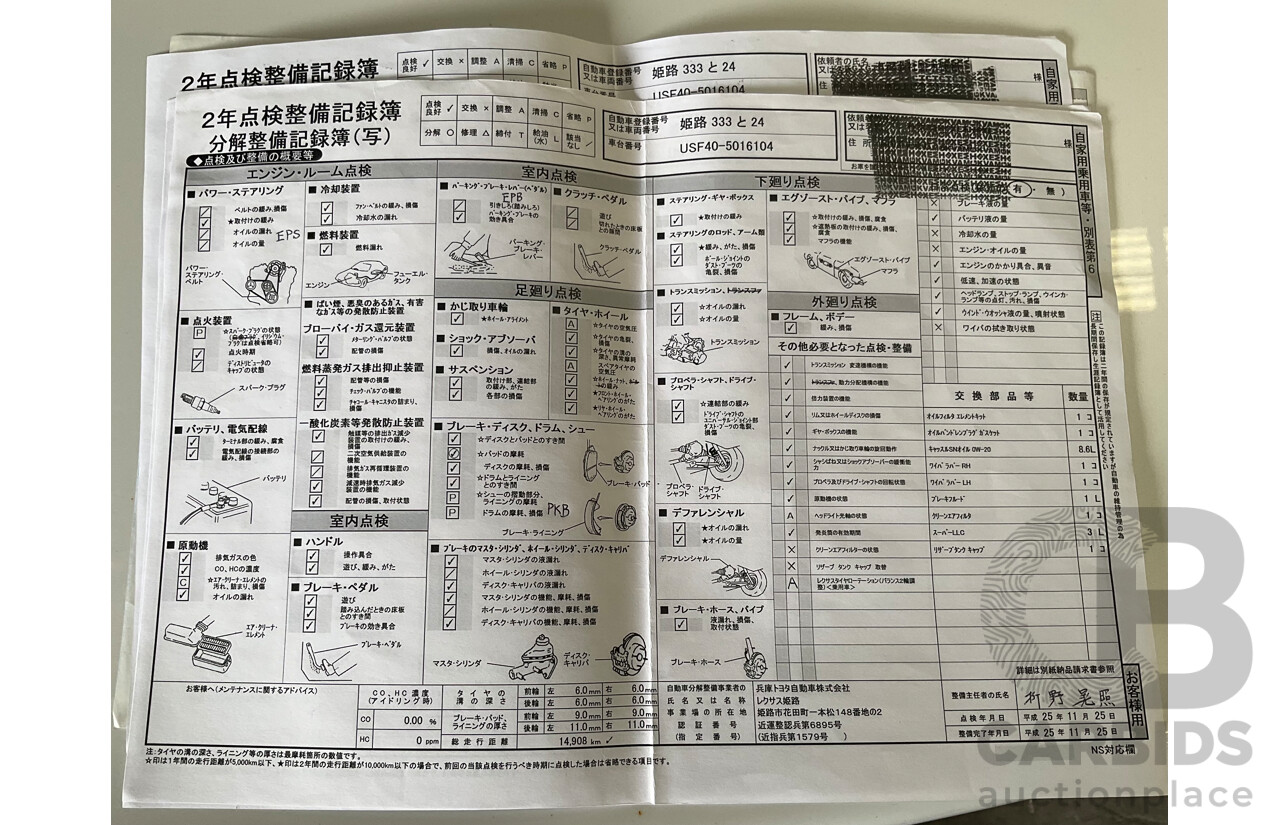 2年点検整備記録簿
点検良好 ✓ 交換 × 調整 A 清掃 C 省略 P
自動車登録番号又は車両番号 姫路 333 と 24
車台番号 USF40-5016104
依頼者の氏名
様
自家用
2年点検整備記録簿
分解整備記録簿(写)
点検良好 ✓ 交換 × 調整 A 清掃 C 省略 P
分解 ○ 修理 △ 締付 T 給油(水) L 該当なし /
自動車登録番号又は車両番号 姫路 333 と 24
車台番号 USF40-5016104
様
(有・無)
自家用乗用車等・別表第6
◆点検及び整備の概要等
エンジン・ルーム点検
■ パワー・ステアリング
ベルトの緩み、損傷
★取付けの緩み
オイルの漏れ
オイルの量
EPS
パワー・ステアリング・ベルト
■ 点火装置
P
点火時期
ディストリビュータのキャップの状態
スパーク・プラグ
■ バッテリ、電気配線
ターミナル部の緩み、腐食
電気配線の接続部の緩み、損傷
バッテリ
■ 原動機
排気ガスの色
CO、HCの濃度
C ☆エア・クリーナ・エレメントの汚れ、詰まり、損傷
オイルの漏れ
エア・クリーナ・エレメント
■ 冷却装置
ファン・ベルトの緩み、損傷
冷却水の漏れ
■ 燃料装置
燃料漏れ
エンジン
フューエル・タンク
■ ばい煙、悪臭のあるガス、有害なガス等の発散防止装置
ブローバイ・ガス還元装置
メターリング・バルブの状態
配管の損傷
燃料蒸発ガス排出抑止装置
配管等の損傷
チェック・バルブの機能
チャコール・キャニスタの詰まり、損傷
一酸化炭素等発散防止装置
触媒等の排出ガス減少装置の取付けの緩み、損傷
二次空気供給装置の機能
排気ガス再循環装置の機能
減速時排気ガス減少装置の機能
配管の損傷、取付状態
室内点検
■ ハンドル
操作具合
遊び、緩み、がた
■ ブレーキ・ペダル
遊び
踏み込んだときの床板とのすき間
ブレーキの効き具合
ブレーキ・ペダル
室内点検
■ パーキング・ブレーキ・レバー(ペダル)
EPB
引きしろ(踏みしろ)
パーキング・ブレーキの効き具合
パーキング・ブレーキ・レバー
■ クラッチ・ペダル
遊び
切れたときの床板との隙間
クラッチ・ペダル
足廻り点検
■ かじ取り車輪
★ホイール・アライメント
■ ショック・アブソーバ
損傷、オイルの漏れ
■ サスペンション
取付部、連結部の緩み、がた
各部の損傷
■ タイヤ・ホイール
A ☆タイヤの空気圧
☆タイヤの亀裂、損傷
☆タイヤの溝の深さ、異常摩耗
A スペアタイヤの空気圧
★フロント・ホイール・ベアリングのがた
★リヤ・ホイール・ベアリングのがた
■ ブレーキ・ディスク、ドラム、シュー
☆ディスクとパッドとのすき間
☆パッドの摩耗
ディスクの摩耗、損傷
☆ドラムとライニングとのすき間
P ☆シューの摺動部分、ライニングの摩耗
P ドラムの摩耗、損傷
PKB
ブレーキ・パッド
ブレーキ・ライニング
■ ブレーキのマスタ・シリンダ、ホイール・シリンダ、ディスク・キャリパ
マスタ・シリンダの液漏れ
ホイール・シリンダの液漏れ
ディスク・キャリパの液漏れ
マスタ・シリンダの機能、摩耗、損傷
ホイール・シリンダの機能、摩耗、損傷
ディスク・キャリパの機能、摩耗、損傷
マスタ・シリンダ
ディスク・キャリパ
下廻り点検
■ ステアリング・ギヤ・ボックス
★取付けの緩み
■ ステアリングのロッド、アーム類
★緩み、がた、損傷
ボール・ジョイントのダスト・ブーツの亀裂、損傷
■ トランスミッション、トランスファ
☆オイルの漏れ
☆オイルの量
トランスミッション
■ プロペラ・シャフト、ドライブ・シャフト
☆連結部の緩み
ドライブ・シャフトのユニバーサル・ジョイント部ダスト・ブーツの亀裂、損傷
プロペラ・シャフト
ドライブ・シャフト
■ デファレンシャル
★オイルの漏れ
★オイルの量
デファレンシャル
■ ブレーキ・ホース、パイプ
液漏れ、損傷、取付状態
ブレーキ・ホース
■ エグゾースト・パイプ、マフラ
☆取付けの緩み、損傷、腐食
☆遮熱板の取付けの緩み、損傷、腐食
マフラの機能
エグゾースト・パイプ
マフラ
外廻り点検
■ フレーム、ボデー
緩み、損傷
× ブレーキ液の量
✓ バッテリ液の量
× 冷却水の量
× エンジン・オイルの量
✓ エンジンのかかり具合、異音
✓ 低速、加速の状態
✓ ヘッドランプ、ストップ・ランプ、ウインカ・ランプ等の点灯、汚れ、損傷
✓ ウインド・ウオッシャ液の量、噴射状態
× ワイパの拭き取り状態
その他必要となった点検・整備
✓ トランスミッション 変速機構の機能
✓ トランスファ、動力分配機構の機能
✓ 倍力装置の機能
✓ リム又はホイールディスクの損傷
✓ ギヤ・ボックスの機能
✓ ナックル又はかじ取り車輪の旋回動作
✓ シャシばね又はショックアブソーバーの緩衝能力
✓ プロペラ及びドライブ・シャフトの回転状態
✓ 原動機の状態
A ヘッドライト光軸の状態
✓ 発炎筒の有効期間
× クリーンエアフィルターの状態
× リザーブ タンク キャップ 取替
A レクサスタイヤローテーション(バランス2輪調整)<乗用車>
交換部品等 数量
オイルフィルタ エレメントキット 1 コ
オイルパンドレンプラグ ガスケット 1 コ
キャッスルSNオイル 0W-20 8.6L
ワイパ ラバー RH 1 コ
ワイパ ラバー LH 1 コ
ブレーキフルード 1 L
クリーンエアフィルタ 1 コ
スーパーLLC 3 L
リザーブ タンク キャップ 1 コ
詳細は別紙納品請求書参照
お客様へ(メンテナンスに関するアドバイス)
CO、HC濃度(アイドリング時)
CO 0.00 %
HC 0 ppm
タイヤの溝の深さ 前輪 左 6.0mm 右 6.0mm
後輪 左 6.0mm 右 6.0mm
ブレーキ・パッド、ライニングの厚さ 前輪 左 9.0mm 右 9.0mm
後輪 左 11.0mm 右 11.0mm
総走行距離 14,908 km ✓
自動車分解整備事業者の氏名又は名称 兵庫トヨタ自動車株式会社
レクサス姫路
事業場の所在地 姫路市花田町一本松148番地の2
認証番号 近運整認兵第6895号
(指定番号) (近指兵第1579号 )
整備主任者の氏名
点検年月日 平成 25 年 11 月 25 日
整備完了年月日 平成 25 年 11 月 25 日
お客様用
NS対応欄
注:タイヤの溝の深さ、ライニング等の厚さは最摩耗箇所の数値です。
☆印は1年間の走行距離が5,000km以下、★印は2年間の走行距離が10,000km以下の場合で、前回の当該点検を行うべき時期に点検した場合は省略できる項目です。
CB
CARBIDS
auctionplace